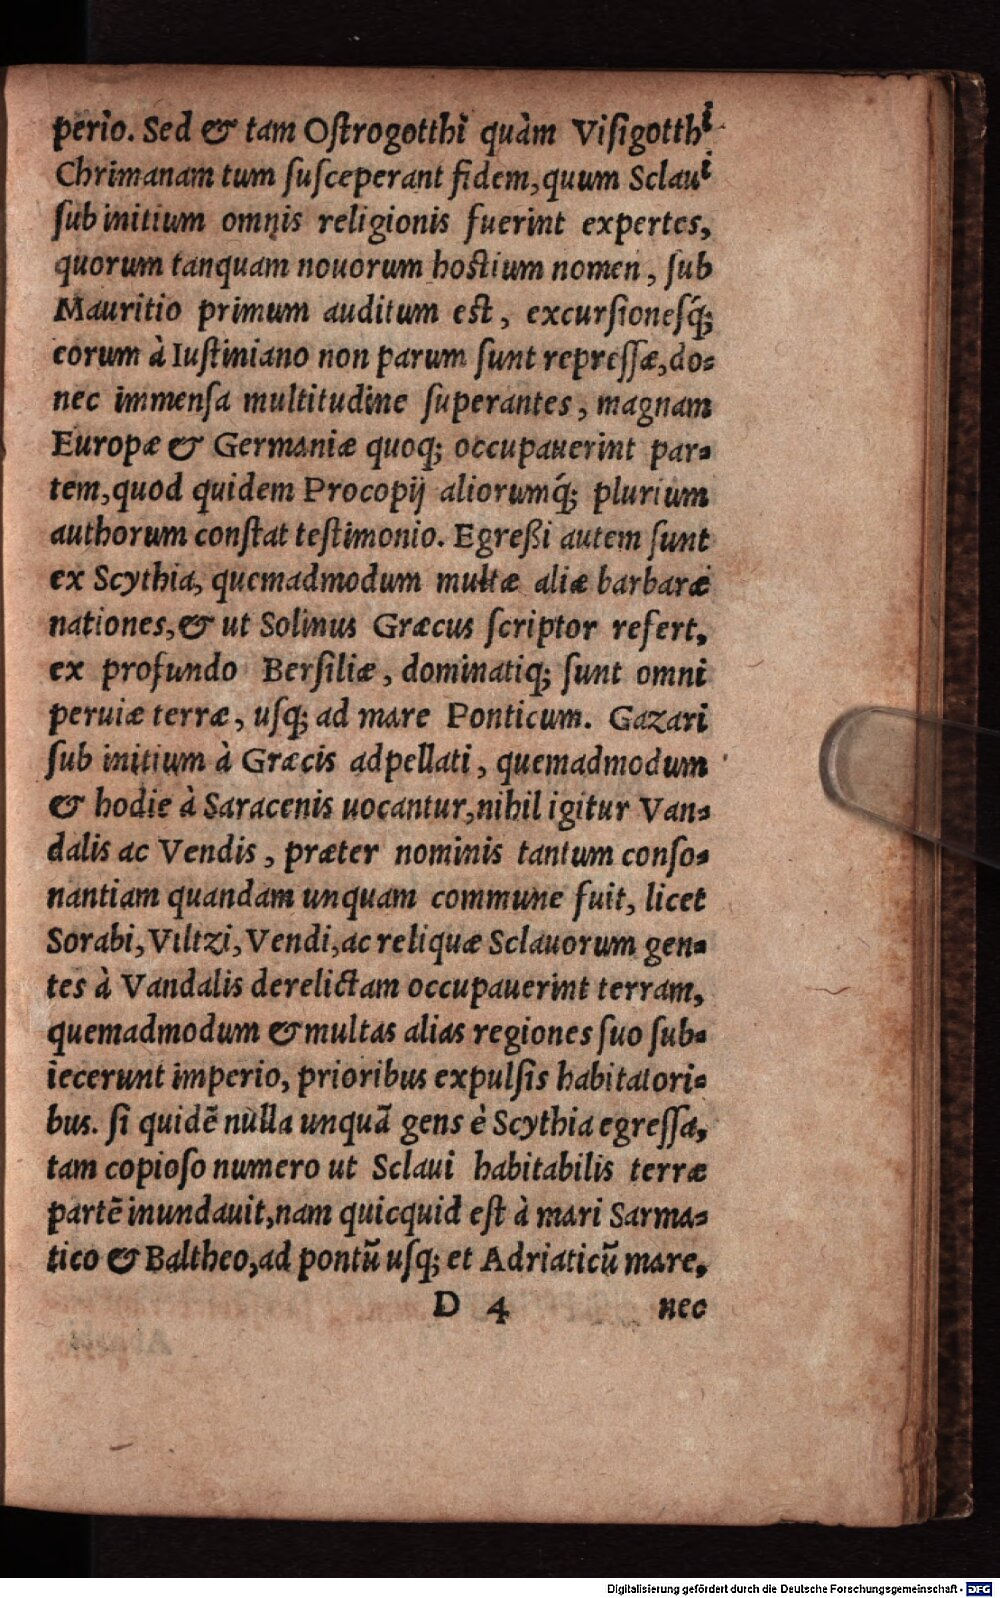 perio. Sed & tam Oſtrogotthi quàm Viſigotthi
Chrimanam tum ſuſceperant fidem, quum Sclaui
ſub initium omnis religionis fuerint expertes,
quorum tanquam nouorum hoſtium nomen, ſub
Mauritio primum auditum eſt, excurſioneſq́;
eorum à Iuſtiniano non parum ſunt repreſſæ, do-
nec immenſa multitudine ſuperantes, magnam
Europæ & Germaniæ quoq; occupauerint par-
tem, quod quidem Procopij aliorumq́; plurium
authorum conſtat teſtimonio. Egreßi autem ſunt
ex Scythia, quemadmodum multæ aliæ barbaræ
nationes, & ut Solinus Græcus ſcriptor refert,
ex profundo Berſiliæ, dominatiq; ſunt omni
peruiæ terræ, uſq; ad mare Ponticum. Gazari
ſub initium à Græcis adpellati, quemadmodum
& hodie à Saracenis uocantur, nihil igitur Van-
dalis ac Vendis, præter nominis tantum conſo-
nantiam quandam unquam commune fuit, licet
Sorabi, Viltzi, Vendi, ac reliquæ Sclauorum gen-
tes à Vandalis derelictam occupauerint terram,
quemadmodum & multas alias regiones ſuo ſub-
iecerunt imperio, prioribus expulſis habitatori-
bus. ſi quidẽ nulla unquã gens è Scythia egreſſa,
tam copioſo numero ut Sclaui habitabilis terræ
partẽ inundauit, nam quicquid eſt à mari Sarma-
tico & Baltheo, ad pontũ uſq; et Adriaticũ mare,
D 4 nec
Digitalisierung gefördert durch die Deutsche Forschungsgemeinschaft - DFG